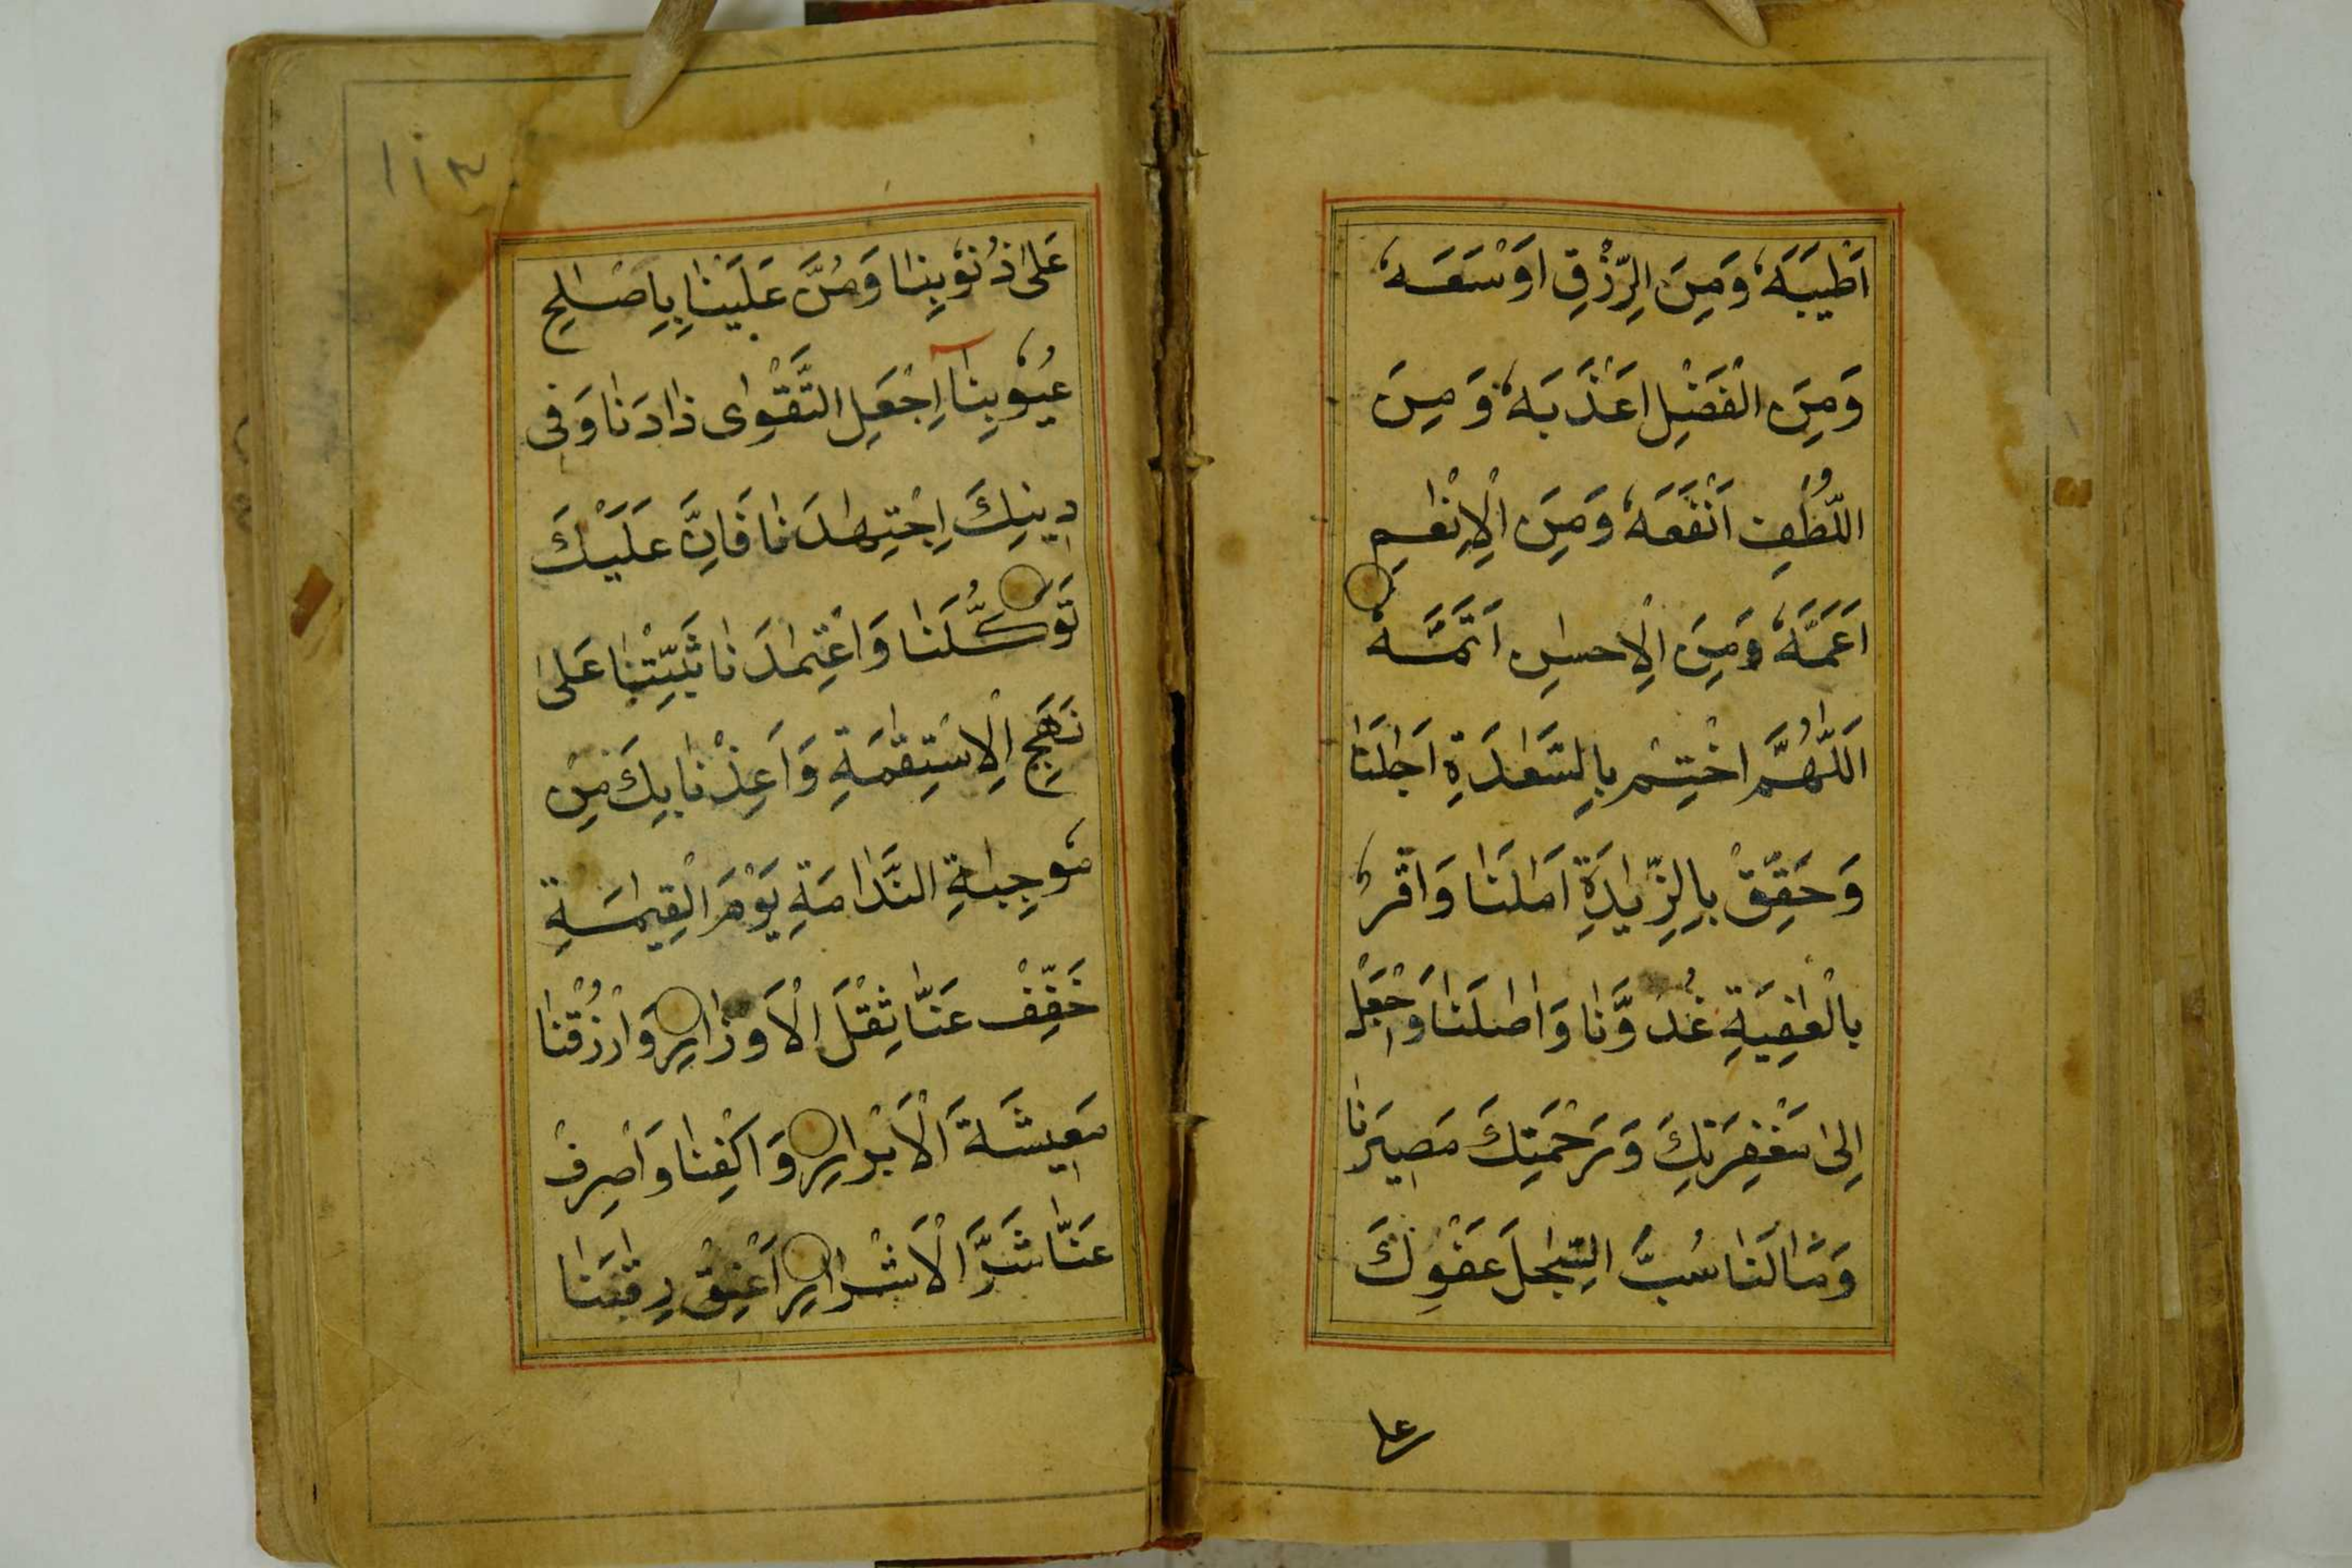 اَطْيَبَهٗ وَمِنَ الرِّزْقِ اَوْسَعَهٗ
وَمِنَ الْفَضْلِ اَعْذَبَهٗ وَمِنَ
اللُّطْفِ اَنْفَعَهٗ وَمِنَ الْاِنْعٰمِ
اَعَمَّهٗ وَمِنَ الْاِحسٰنِ اَتَمَّهٗ
اَللّٰهُمَّ اخْتِمْ بِالسَّعٰدَةِ اٰجٰلَنَا
وَحَقِّقْ بِالزِّيٰدَةِ اٰمٰلَنَا وَاقْرُ
بِالْعٰفِيَةِ غُدُوَّنَا وَاٰصٰلَنَا وَاجْعَلْ
اِلٰى مَغْفِرَتِكَ وَرَحْمَتِكَ مَصِيرَنَا
وَمٰالَنَا صُبَّ السِّجٰلَ عَفْوِكَ
عل
١١٣
عَلٰى ذُنُوْبِنَا وَمُنَّ عَلَيْنَا بِاِصْلٰحِ
عُيُوْبِنَا اِجْعَلِ التَّقْوٰى زٰادَنَا وَفِى
دِينِكَ اِجْتِهٰدَنَا فَاِنَّ عَلَيْكَ
تَوَكُّلَنَا وَاعْتِمٰدَنَا ثَبِّتْنَا عَلٰى
نَهَجِ الْاِسْتِقٰمَةِ وَاَعِذْنَا بِكَ مِنْ
مُوجِبٰاةِ النَّدٰامَةِ يَوْمَ الْقِيٰمَةِ
خَفِّفْ عَنَّا ثِقْلَ الْاَوْزٰارِ وَارْزُقْنَا
مَعِيشَةَ الْاَبْرٰارِ وَاكْفِنَا وَاصْرِفْ
عَنَّا شَرَّ الْاَشْرٰارِ اَعْتِقْ رِقٰبَنَا